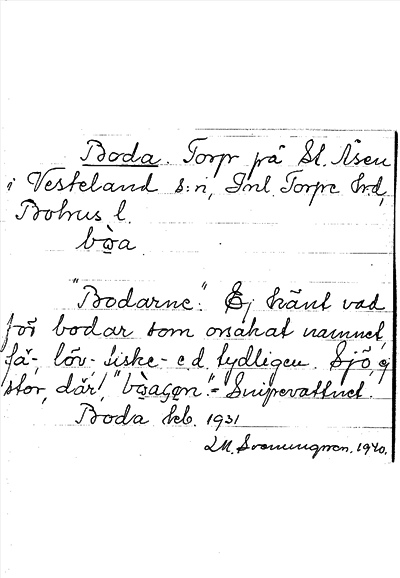 Boda. Torp på St. Åsen
i Vesteland s:n, Inl. Torpe hrd,
Bohus l.
bὼa.
"Bodarne": Ej känt vad
för bodar som orsakat namnet,
få-, löv- fiske- e.d. tydligen. Sjö, ej
stor, där, "bὼagən" = Snipevattnet.
Boda feb. 1931
I.M. Svenungsson. 1940.